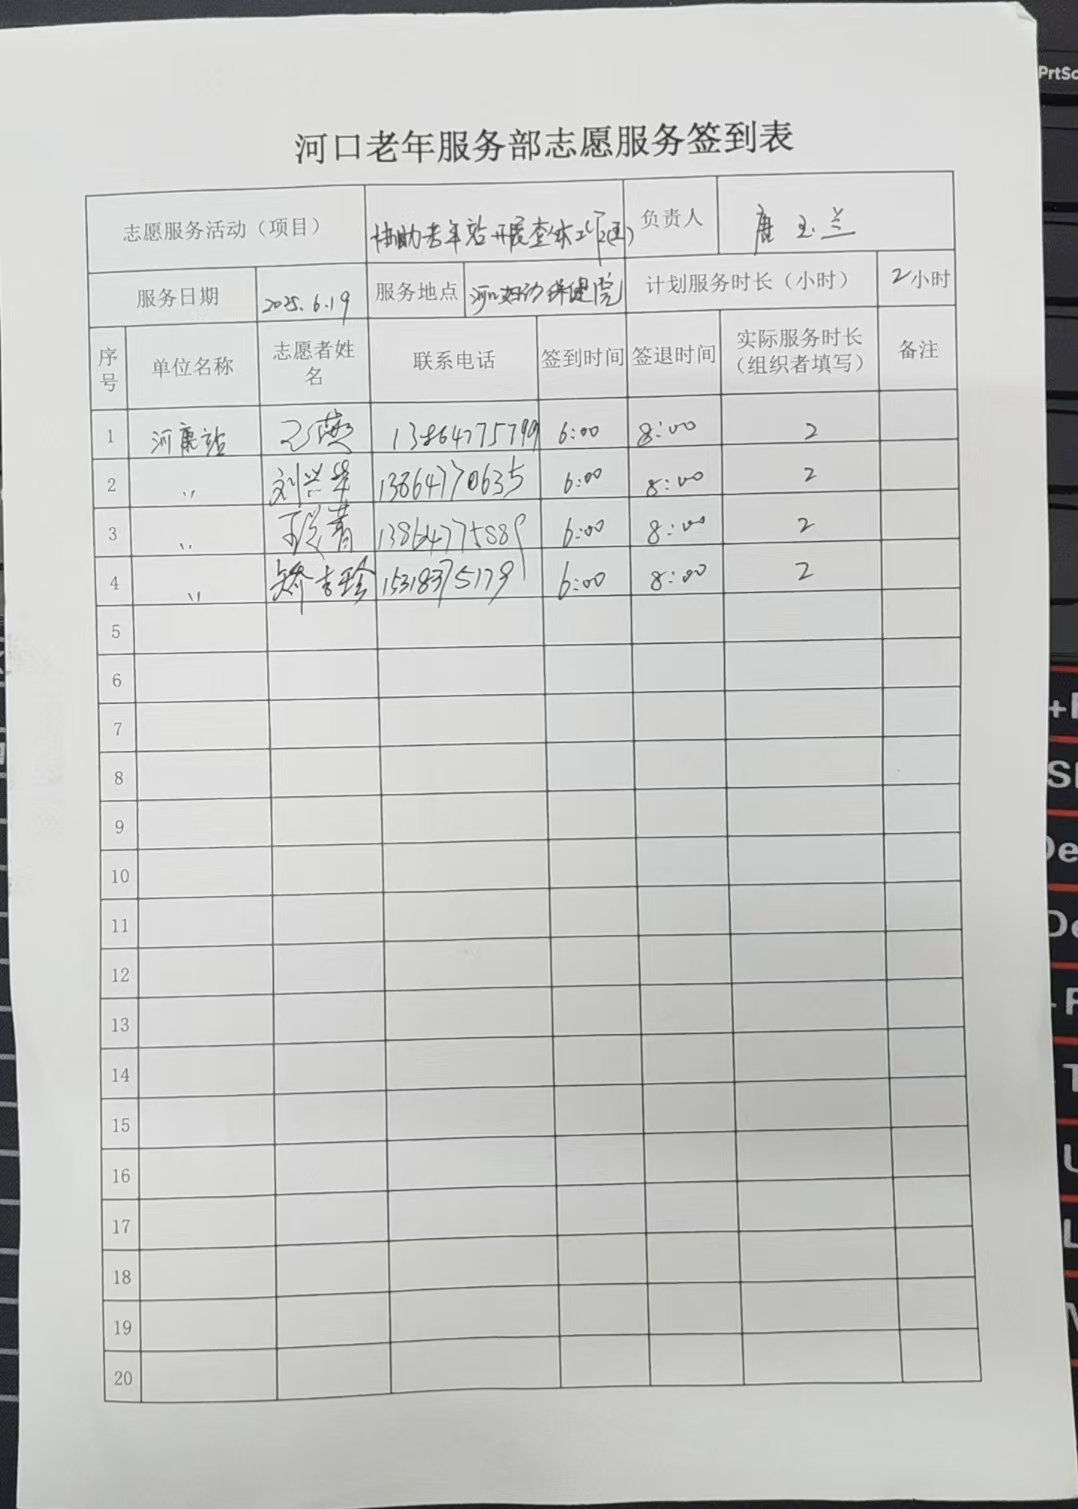 河口老年服务部志愿服务签到表
志愿服务活动（项目） 协助老年站开展查体工作 负责人 唐玉兰
服务日期 2025.6.19 服务地点 河口妇幼保健院 计划服务时长（小时） 2小时
序号 单位名称 志愿者姓名 联系电话 签到时间 签退时间 实际服务时长（组织者填写） 备注
1 河康站 王燕 13864775799 6:00 8:00 2
2 〃 刘兴华 13864770635 6:00 8:00 2
3 〃 13864775889 6:00 8:00 2
4 〃 矫吉珍 15318375179 6:00 8:00 2
5
6
7
8
9
10
11
12
13
14
15
16
17
18
19
20
PrtSc